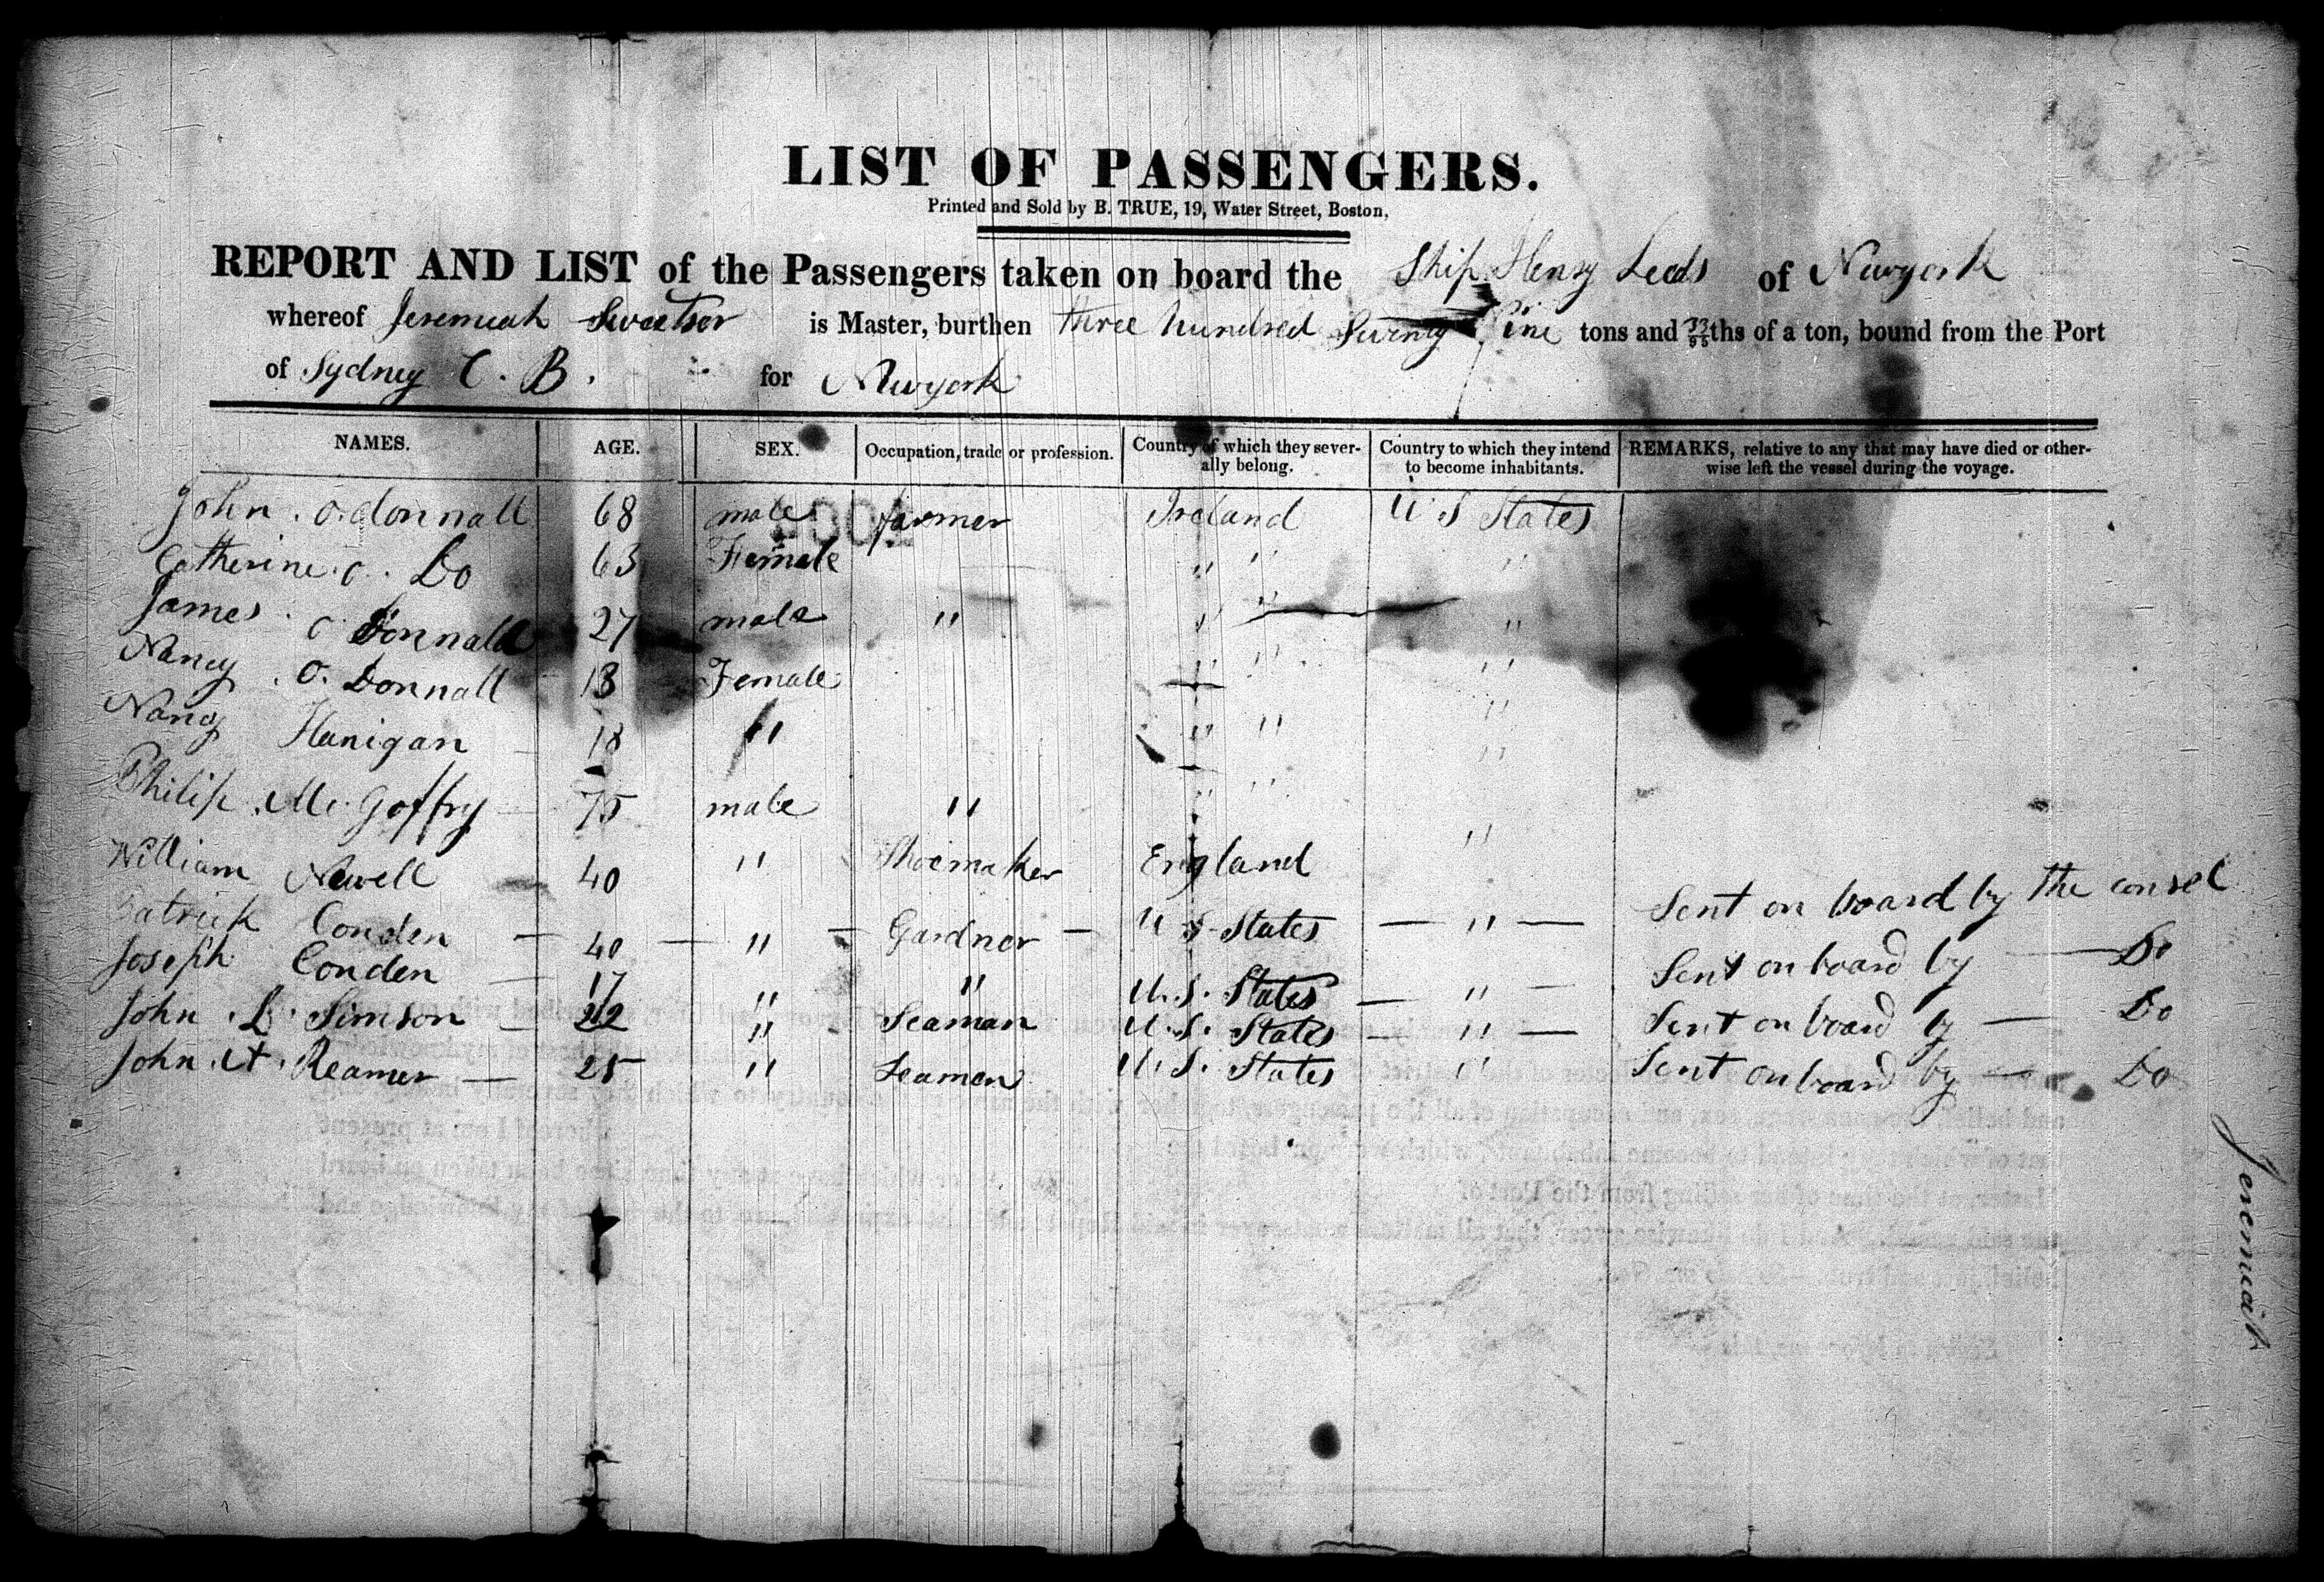 LIST OF PASSENGERS.
Printed and Sold by B. TRUE, 19, Water Street, Boston.
REPORT AND LIST of the Passengers taken on board the Ship Henry Leeds of Newyork
whereof Jeremiah Sweetser is Master, burthen three hundred Seventy Nine tons and 33/95ths of a ton, bound from the Port
of Sydney C. B. for Newyork
NAMES. AGE. SEX. Occupation, trade or profession. Country of which they severally belong. Country to which they intend to become inhabitants. REMARKS, relative to any that may have died or otherwise left the vessel during the voyage.
John . O. donnall 68 male farmer Ireland U. S States
Catherine . O . Do 63 Female " " "
James . O Donnald 27 male " " " "
Nancy . O. Donnall 18 Female " " "
Nancy Hanigan 18 " " " "
Philip . Mc. Goffry 75 male " " " "
William Newell 40 " Shoemaker England "
Patrick Conden 40 " Gardner U S States " Sent on board by the consel
Joseph Conden 17 " " U. S. States " Sent on board by Do
John . L. Simson 22 " Seaman U. S. States " Sent on board by Do
John . A. Reamer 25 " Seamen U. S. States " Sent on board by Do
Jeremiah